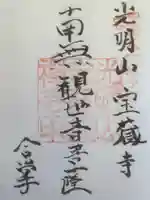 光明山宝蔵寺
南無観世音菩薩
合掌